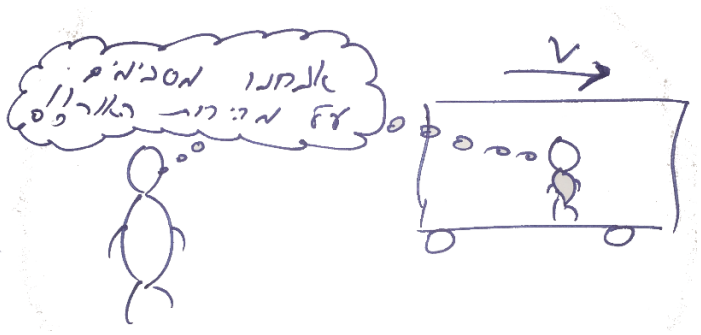 אנחנו מסכימים
על מהירות האור
V